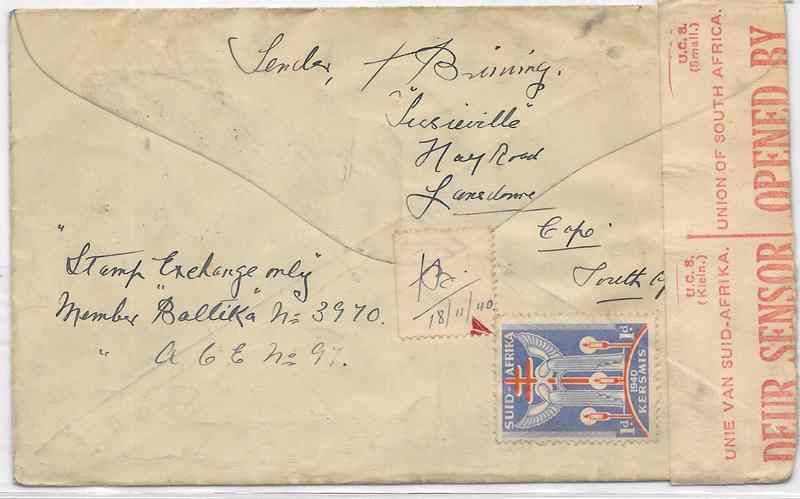 Sender,
"Susieville"
Hay Road
Lansdowne
Cape
South
"Stamp Exchange only"
Member "Baltika" No 3970.
" A C E No 97.
18/11/40
SUID-AFRIKA
1940
KERSMIS
1d.
1d.
U.C. 8.
(Small.)
UNION OF SOUTH AFRICA.
OPENED BY
U.C. 8.
(Klein.)
UNIE VAN SUID-AFRIKA.
DEUR SENSOR